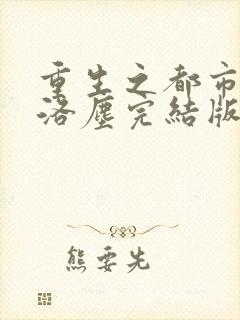 重生之都市
洛塵完結版
熊要先